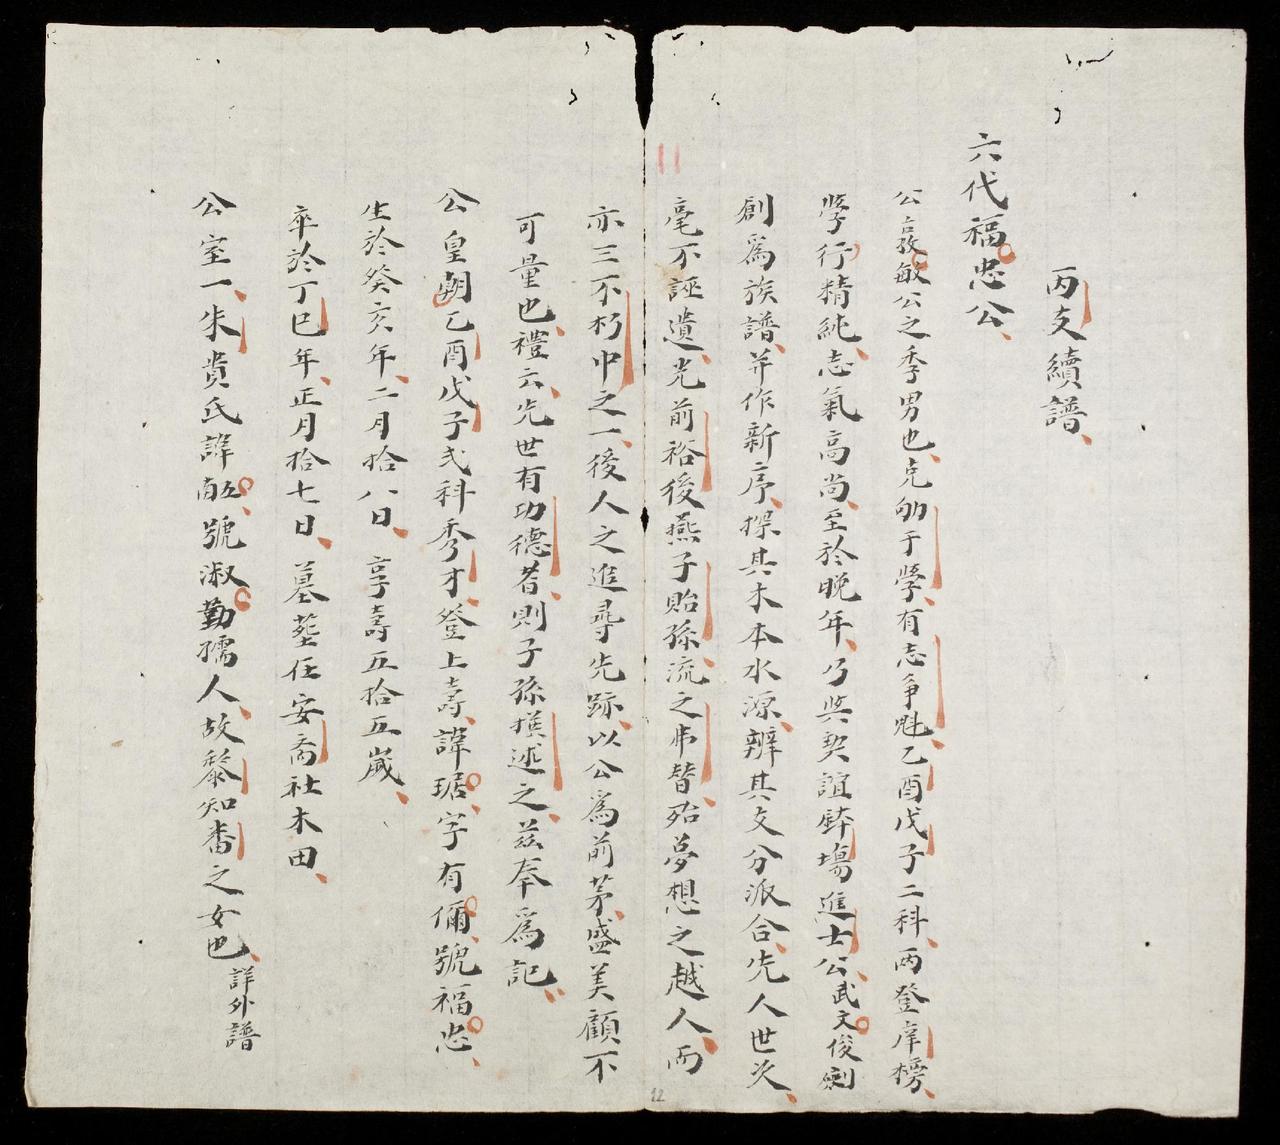 丙支續譜
六代福忠公
公言敦敏公之季男也克劬于學有志争魁乙酉戊子二科两登庠榜
學行精純志氣高尚至於晚年乃與契誼鉢場進士公武文俊劍
創爲族譜并作新序探其木本水源辨其支分派合先人世次
毫不誣遺光前裕後燕子貽孫流之弗替殆夢想之越人而
亦三不朽中之一後人之追尋先跡以公爲前茅盛美顧不
可量也禮云先世有功德者則子孫撰述之兹奉爲記
公皇朝乙酉戊子弍科秀才登上壽諱琚字有儞號福忠
生於癸亥年二月拾八日享壽五拾五歲
卒於丁巳年正月拾七日墓塟在安裔社木田
公室一朱贵氏諱號淑勤孺人故黎知畨之女也詳外譜
12